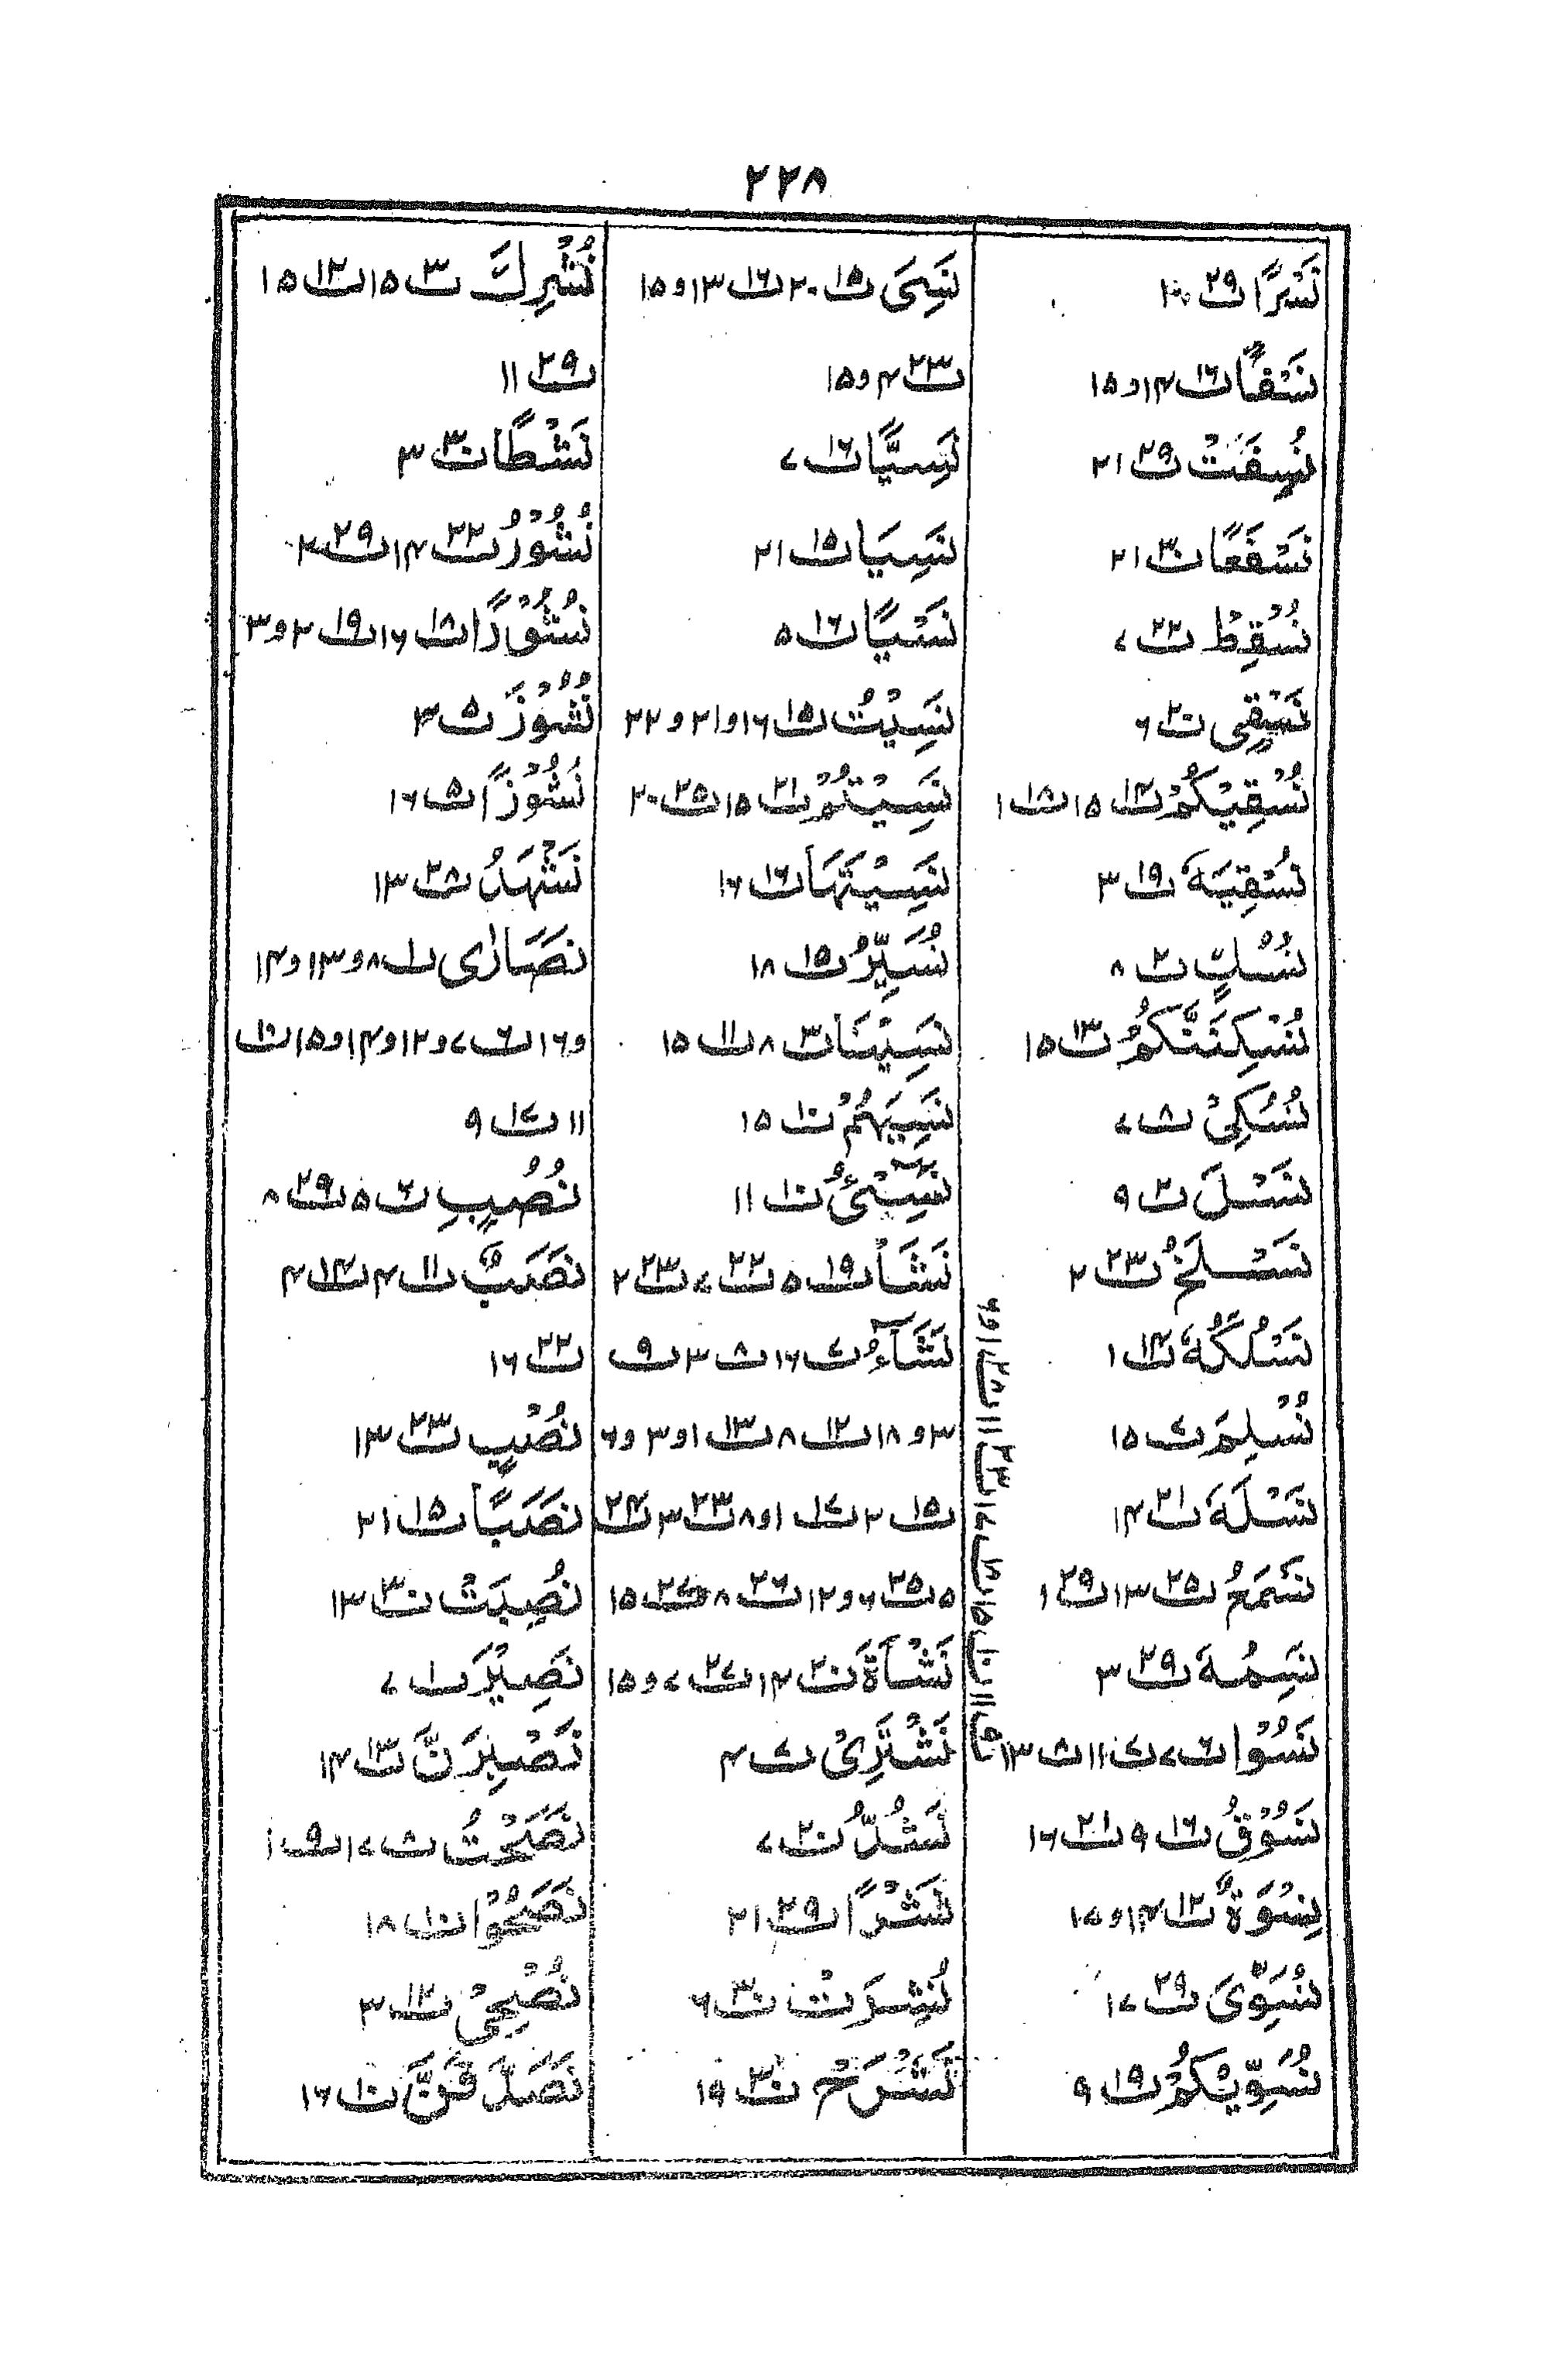 ۲۲۸
نَسْرًا ت۲۹ ۱۰
نَسْفًا ت۱۶ ۱۴و۱۵
نُسِفَتْ ت۲۹ ۲۱
نَسْفَعًا ت۳۰ ۲۱
نُسْقِطْ ت۲۲ ۷
نَسْقِی ت۲۰ ۶
نُسْقِیْکُمْ ت۱۴ ۱۵ ت۱۸ ۱
نُسْقِیَهٗ ت۱۹ ۳
نُسُكٍ ت۲ ۸
نُسْکِنَنَّکُمُ ت۱۳ ۱۵
نُسُکِیْ ت۸ ۷
نَسْلَ ت۲ ۹
نَسْلَخُ ت۲۳ ۲
نَسْلُکُهٗ ت۱۴ ۱
نُسْلِمَ ت۷ ۱۵
نَسْلَهٗ ت۲۱ ۱۴
نَسْمَعُ ت۲۵ ۱۳ ت۲۹ ۱
نَسِمُهٗ ت۲۹ ۳
نَسُوْا ت۶ ۷ ت۷ ۱۱ ت۸ ۱۳
ت۹ ۱۱ ت۱۰ ۱۵ ت۱۸ ۱۷ ت۲۳ ۱۱ ت۲۸ ۲و۶
نَسُوْقُ ت۱۶ ۹ ت۲۱ ۱۶
نِسْوَةٌ ت۱۲ ۱۴و۱۷
نُسَوِّیَ ت۲۹ ۱۷
نُسَوِّیْکُمْ ت۱۹ ۹
نَسِیَ ت۱۵ ۲۰ ت۱۶ ۱۳و۱۵
ت۲۳ ۴و۱۵
نَسِیًّا ت۱۶ ۷
نَسِیَا ت۱۵ ۲۱
نَسْیًا ت۱۶ ۵
نَسِیْتُ ت۱۵ ۱۶و۲۱و۲۲
نَسِیْتُمْ ت۲۱ ۱۵ ت۲۵ ۲۰
نَسِیْتَهَا ت۱۶ ۱۶
نُسَیِّرُ ت۱۵ ۱۸
نَسِیْنَا ت۳ ۸ ت۱۱ ۱۵
نَسِیَهُمْ ت۱۰ ۱۵
نَسِیْٓیُٔ ت۱۰ ۱۱
نَشَأْ ت۱۹ ۵ ت۲۲ ۷ ت۲۳ ۲
نَشَآءُ ت۷ ۱۶ ت۸ ۳ ت۹
۳و۱۸ ت۱۲ ۸ ت۱۳ ۱و۳و۶
ت۱۵ ۲ ت۱۷ ۱و۸ ت۲۳ ۳ ت۲۴
۵ ت۲۵ ۶و۱۲ ت۲۶ ۸ ت۲۷ ۱۵
نَشْأَةَ ت۲۰ ۱۴ ت۲۷ ۷و۱۵
نَشْتَرِیْ ت۷ ۴
نَشُدُّ ت۲۰ ۷
نَشْرًا ت۲۹ ۲۱
نُشِرَتْ ت۳۰ ۶
نَشْرَحْ ت۳۰ ۱۹
نُشْرِكَ ت۳ ۱۵ ت۱۲ ۱۵
ت۲۹ ۱۱
نَشْطًا ت۳۰ ۳
نُشُوْرُ ت۲۲ ۱۴ ت۲۹ ۲
نُشُوْرًا ت۱۸ ۱۶ ت۱۹ ۲و۳
نُشُوْزَ ت۵ ۳
نُشُوْزًا ت۵ ۱۶
نَشْهَدُ ت۲۸ ۱۳
نَصَارٰی ت۱ ۸و۱۳و۱۴
و۱۶ ت۶ ۷و۱۲و۱۴و۱۵ ت۱۰
۱۱ ت۱۷ ۹
نُصُبِ ت۶ ۵ ت۲۹ ۸
نَصَبٌ ت۱۱ ۴ ت۱۴ ۴
ت۲۲ ۱۶
نُصْبٍ ت۲۳ ۱۳
نَصَبًا ت۱۵ ۲۱
نُصِبَتْ ت۳۰ ۱۳
نَصْبِرَ ت۱ ۷
نَصْبِرَنَّ ت۱۳ ۱۴
نَصَحْتُ ت۸ ۱۷ ت۹ ۱
نَصَحُوْا ت۱۰ ۱۸
نُصْحِیْ ت۱۲ ۳
نَصَّدَّقَنَّ ت۱۰ ۱۶